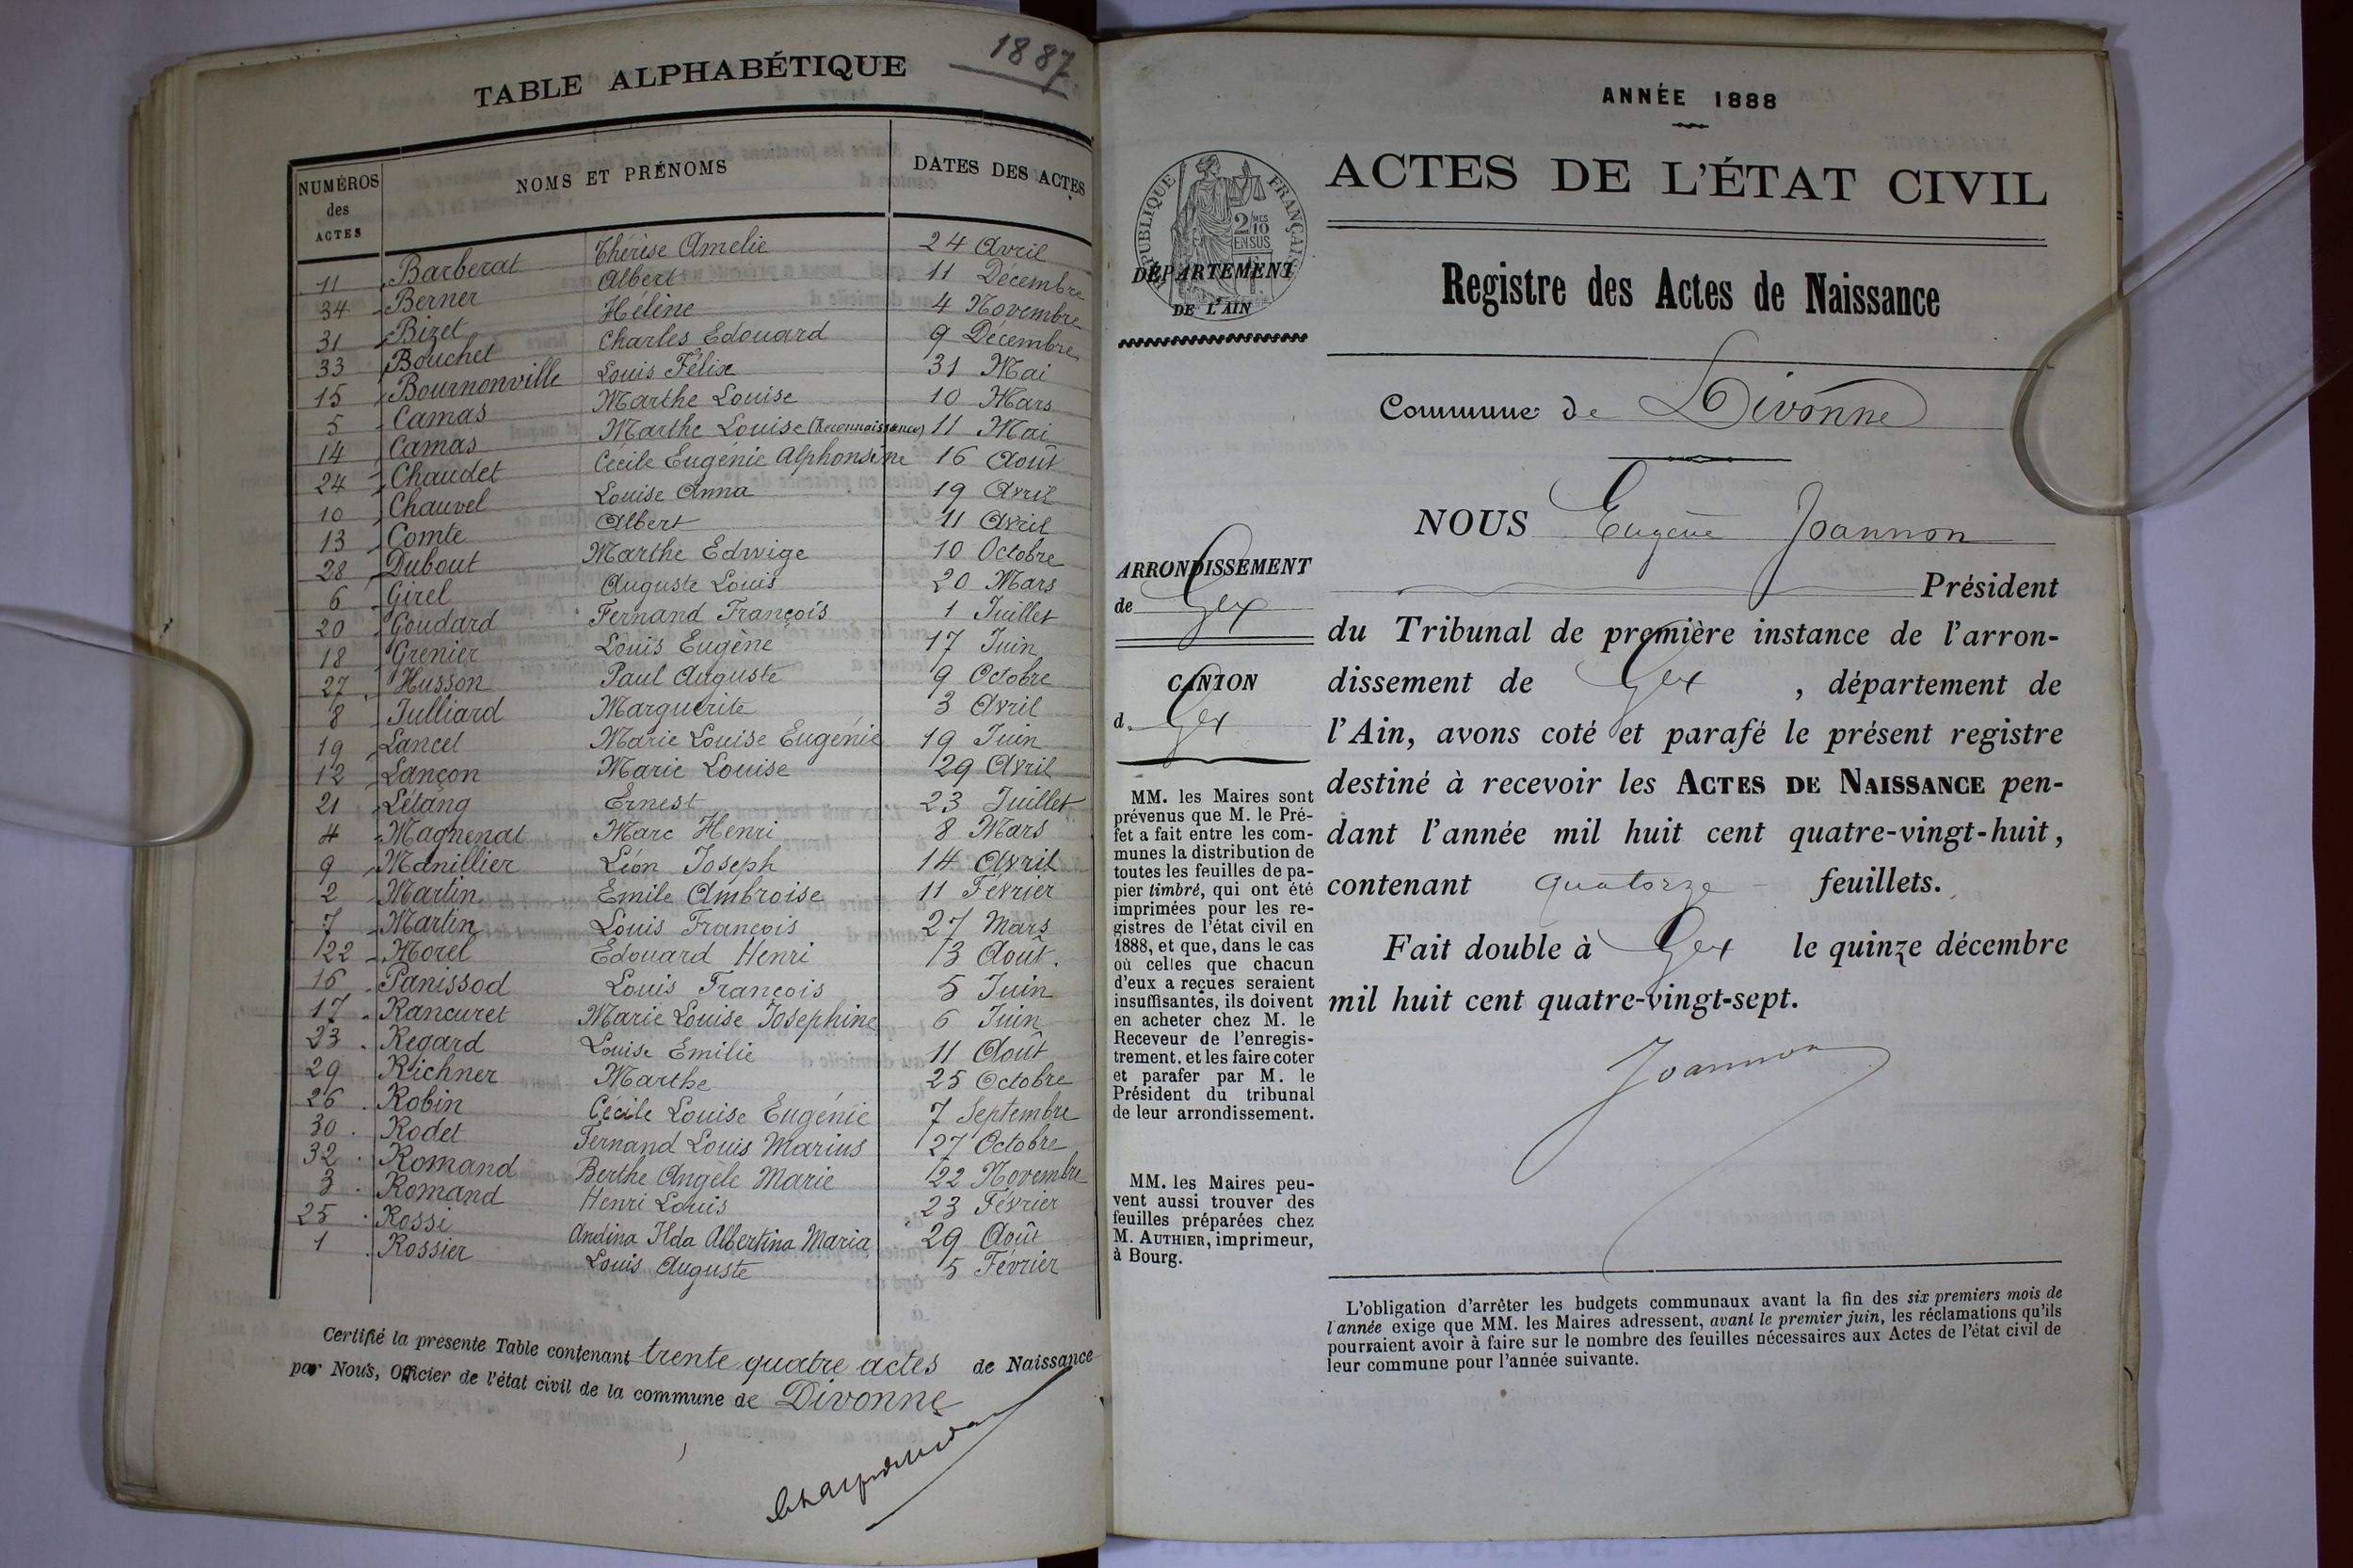 TABLE ALPHABÉTIQUE 1887
NUMÉROS des ACTES NOMS ET PRÉNOMS DATES DES ACTES
11 Barberat Thérèse Amelie 24 Avril
34 Berner Albert 11 Décembre
31 Bizet Hélène 4 Novembre
33 Bouchet Charles Edouard 9 Décembre
15 Bournonville Louis Félix 31 Mai
5 Camas Marthe Louise 10 Mars
14 Camas Marthe Louise (Reconnaissance) 11 Mai
24 Chaudet Cécile Eugénie Alphonsine 16 Août
10 Chauvel Louise Anna 19 Avril
13 Comte Albert 11 Avril
28 Dubout Marthe Edwige 10 Octobre
6 Girel Auguste Louis 20 Mars
20 Goudard Fernand François 1 Juillet
18 Grenier Louis Eugène 17 Juin
27 Husson Paul Auguste 9 Octobre
8 Julliard Marguerite 3 Avril
19 Lancel Marie Louise Eugénie 19 Juin
12 Lançon Marie Louise 29 Avril
21 Létang Ernest 23 Juillet
4 Magnenat Marc Henri 8 Mars
9 Manillier Léon Joseph 14 Avril
2 Martin Emile Ambroise 11 Février
7 Martin Louis François 27 Mars
22 Morel Edouard Henri 13 Août.
16 Panissod Louis François 5 Juin
17 Rancuret Marie Louise Josephine 6 Juin
23 Regard Louise Emilie 11 Août
29 Richner Marthe 25 Octobre
26 Robin Cécile Louise Eugénie 7 Septembre
30 Rodet Fernand Louis Marius 27 Octobre
32 Romand Berthe Angèle Marie 22 Novembre
3 Romand Henri Louis 23 Février
25 Rossi Andina Ilda Albertina Maria 29 Août
1 Rossier Louis Auguste 5 Février
Certifié la presente Table contenant trente quatre actes de Naissance
par Nous, Officier de l'état civil de la commune de Divonne
ANNÉE 1888
ACTES DE L'ÉTAT CIVIL
RÉPUBLIQUE FRANÇAISE
DÉPARTEMENT
DE L'AIN
Registre des Actes de Naissance
Commune de Divonne
ARRONDISSEMENT
de Gex
CANTON
d. Gex
MM. les Maires sont
prévenus que M. le Pré-
fet a fait entre les com-
munes la distribution de
toutes les feuilles de pa-
pier timbré, qui ont été
imprimées pour les re-
gistres de l'état civil en
1888, et que, dans le cas
où celles que chacun
d'eux a reçues seraient
insuffisantes, ils doivent
en acheter chez M. le
Receveur de l'enregis-
trement, et les faire coter
et parafer par M. le
Président du tribunal
de leur arrondissement.
MM. les Maires peu-
vent aussi trouver des
feuilles préparées chez
M. AUTHIER, imprimeur,
à Bourg.
NOUS Eugène Joannon
Président
du Tribunal de première instance de l'arron-
dissement de Gex , département de
l'Ain, avons coté et parafé le présent registre
destiné à recevoir les ACTES DE NAISSANCE pen-
dant l'année mil huit cent quatre-vingt-huit,
contenant quatorze feuillets.
Fait double à Gex le quinze décembre
mil huit cent quatre-vingt-sept.
Joannon
L'obligation d'arrêter les budgets communaux avant la fin des six premiers mois de
l'année exige que MM. les Maires adressent, avant le premier juin, les réclamations qu'ils
pourraient avoir à faire sur le nombre des feuilles nécessaires aux Actes de l'état civil de
leur commune pour l'année suivante.